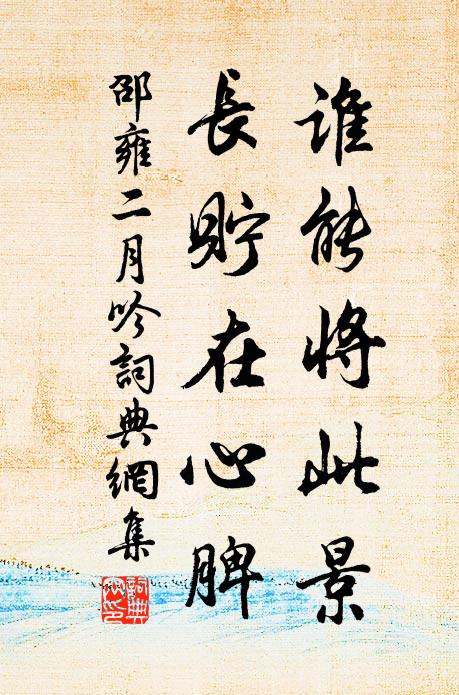 谁能将此景
長貯在心脾
邵雍二月吟詞典網集